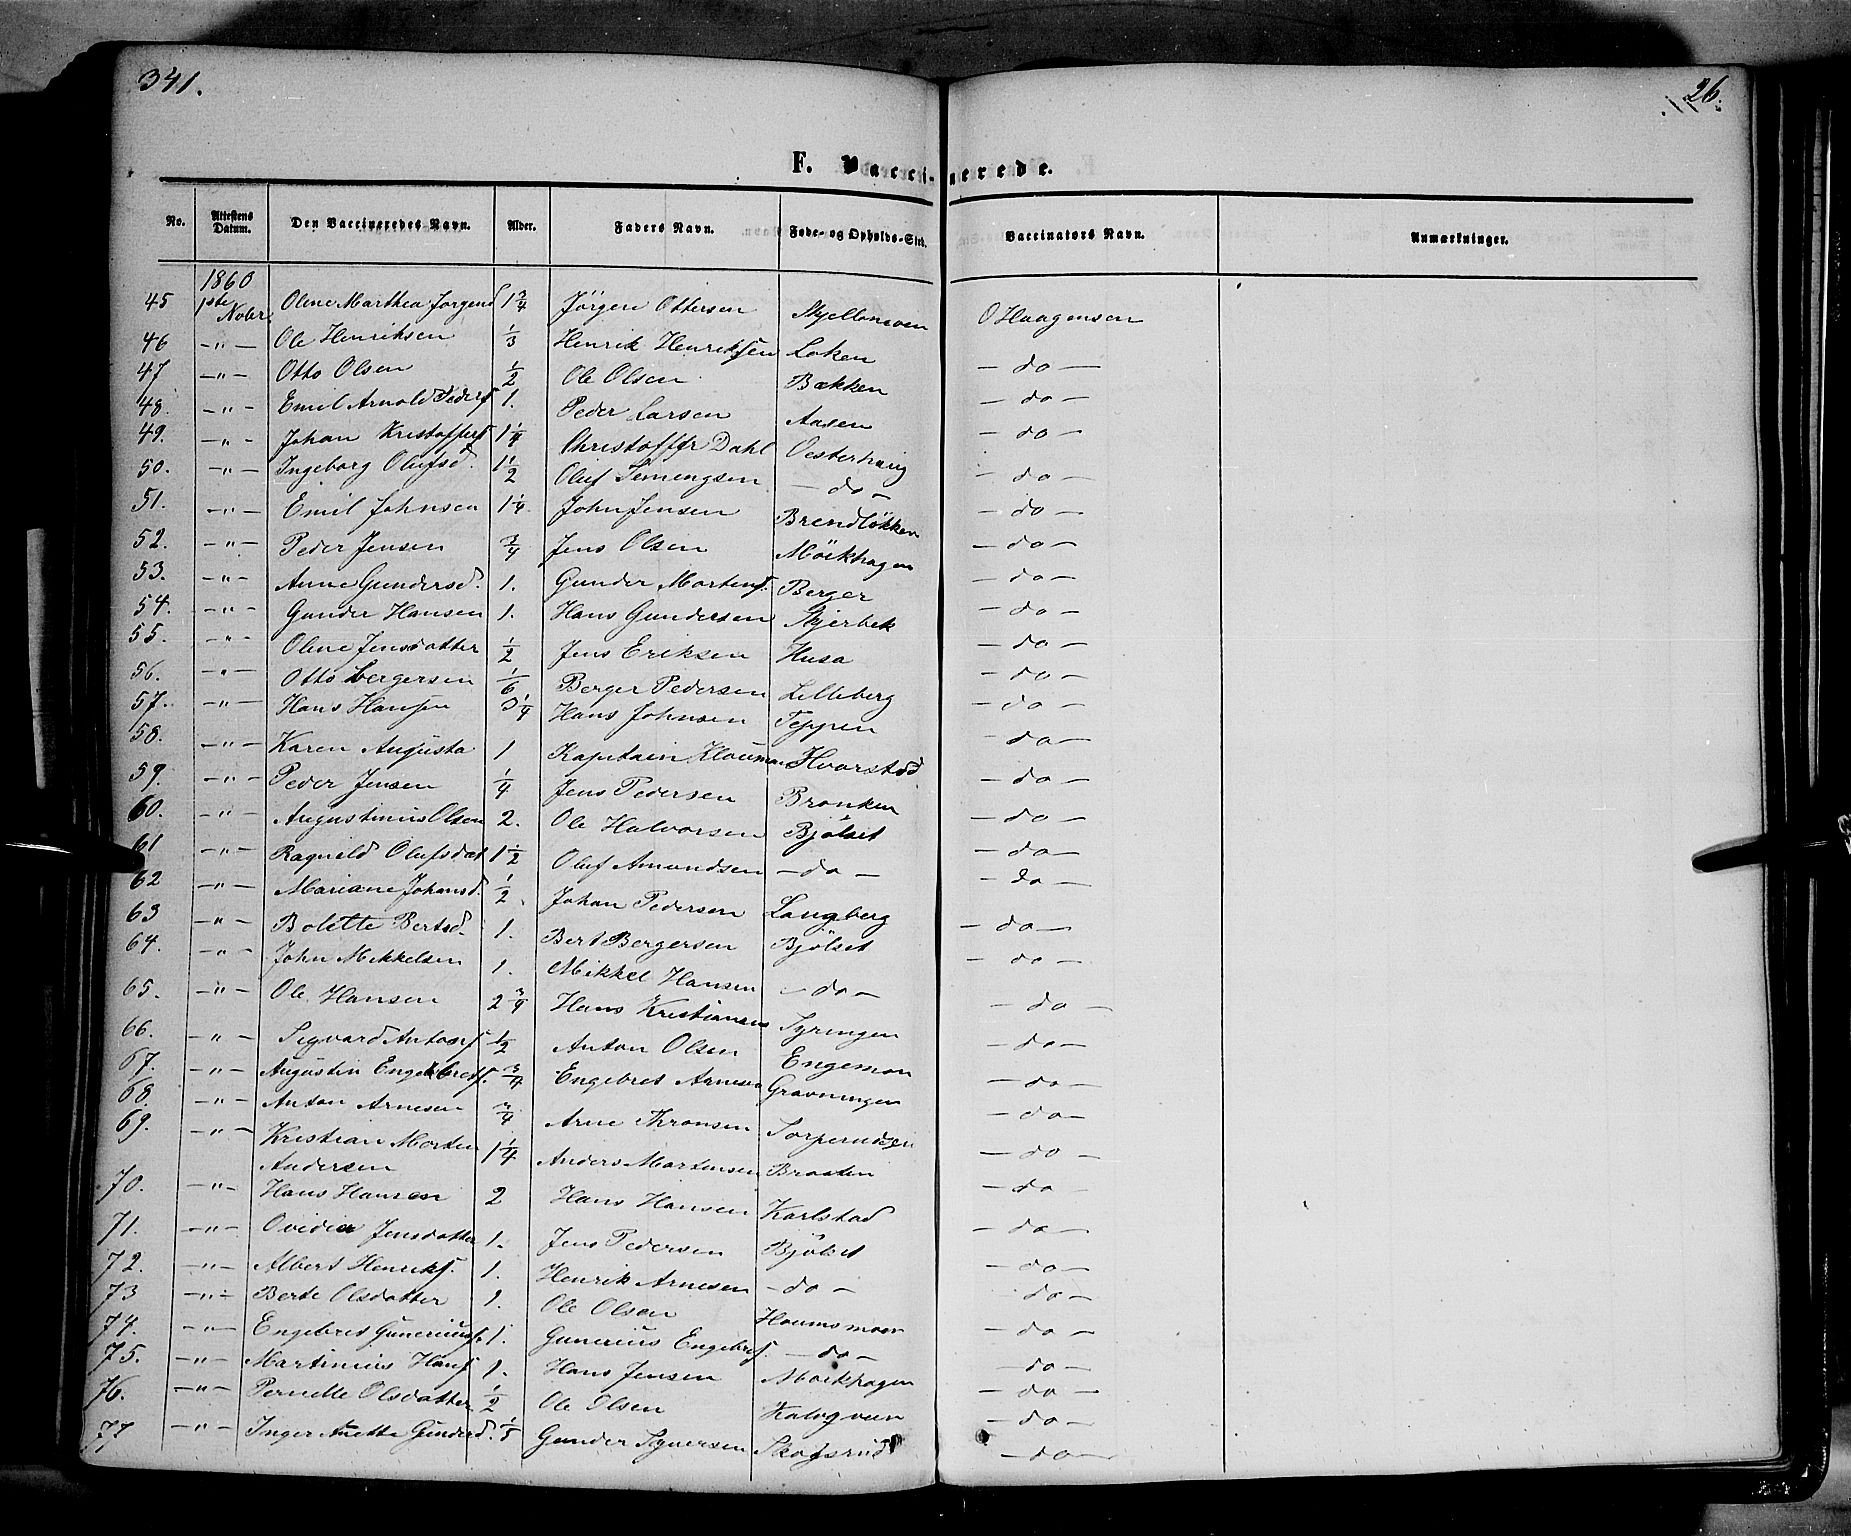 341.
26.
F. Vaccinerede.
No. Attestens Datum. Den Vaccineredes Navn. Alder. Faders Navn. Føde- og Opholds-Sted. Vaccinators Navn. Anmærkninger.
1860
45 1ste Novbr. Oline Marthea Jorgens 1 3/4 Jörgen Ottersen Skjellomoen O Haagensen
46 —"— Ole Henriksen 1/3 Henrik Henriksen Loken — do —
47 —"— Otto Olsen 1/2 Ole Olsen Bækken — do —
48. —"— Emil Arnold Peders 1. Peder Larsen Aasen — do —
49. —"— Johan Kristoffers 1 1/4 Christoffer Dahl Oesterhaug — do —
50. —"— Ingeborg Olufsd. 1 1/2 Oluf Semingsen — do — — do —
51. —"— Emil Johnsen 1 1/4 John Jensen Brendlökken — do —
52. —"— Peder Jensen 3/4 Jens Olsen Mörkhagen — do —
53. —"— Anne Gundersd. 1. Gunder Martens. Berger — do —
54. —"— Gunder Hansen 1. Hans Gundersen Skjerbek — do —
55. —"— Oline Jensdatter 1/2 Jens Eriksen Husa — do —
56. —"— Otto Bergersen 1/6 Berger Pedersen Lilleberg — do —
57. —"— Hans Hansen 3 1/4 Hans Johnsen Teppen — do —
58. —"— Karen Augusta 1 Kapitain Klouman Hvarstad — do —
59. —"— Peder Jensen 1/4 Jens Pedersen Bronken — do —
60. —"— Augustinius Olsen 2. Ole Halvorsen Bjölset — do —
61 —"— Ragnild Olufsdat 1 1/2 Oluf Amundsen — do — — do —
62 —"— Mariane Johansd. 1/2 Johan Pedersen Langberg — do —
63 —"— Bolette Bertsd. 1. Bert Bergersen Bjölset — do —
64. —"— John Mikkelsen 1. Mikkel Hansen — do — — do —
65. —"— Ole Hansen 2 3/4 Hans Kristiansen Tyringen — do —
66. —"— Sigvard Antons 1/2 Anton Olsen Engemoen — do —
67. —"— Augustin Engebrets. 3/4 Engebret Arnesen Gravningen — do —
68. —"— Anton Arnesen 3/4 Arne Thronsen Torperudseie — do —
69. —"— Kristian Morten
Andersen 1 1/4 Anders Martinsen Braaten — do —
70. —"— Hans Hansen 2 Hans Hansen Karlstad — do —
71. —"— Ovidia Jensdatter 1. Jens Pedersen Bjölset — do —
72. —"— Albert Henriks. 1. Henrik Arnesen — do — — do —
73 —"— Berte Olsdatter 1. Ole Olsen Houmsmoen — do —
74. —"— Engebret Guneriuss. 1. Gunerius Engebrets. — do — — do —
75. —"— Martinius Hans 1. Hans Jensen Morkhagen — do —
76. —"— Pernille Olsdatter 1/2 Ole Olsen — do —
77 —"— Inger Anette Gunderd. 1/5 Gunder Syversen Skofsrud — do —